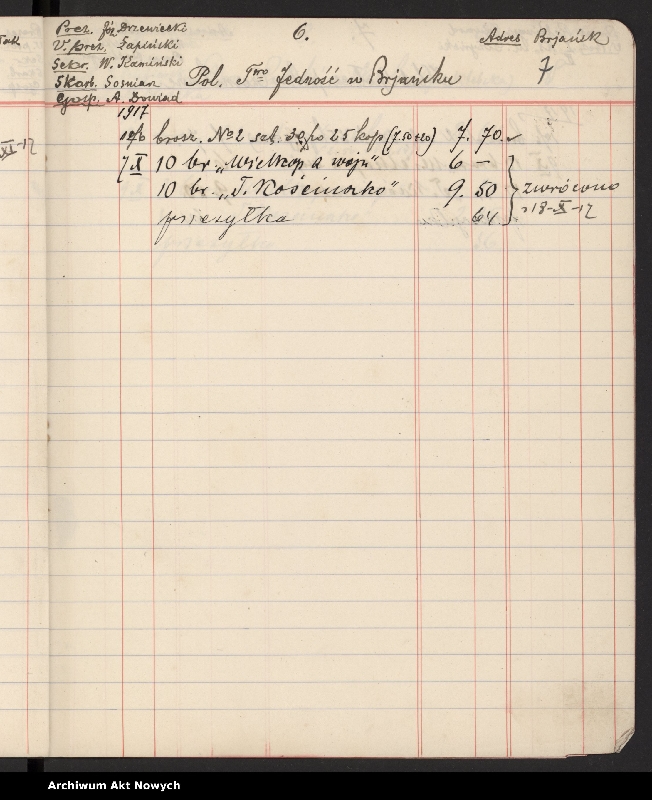 Prez. Józ. Drzewiecki
V. prez. Łapiński
Sekr. W. Kamiński
Skarb. Sosnian
Gosp. A. Dowiad
6.
Adres Brjańsk
7
Pol. T-wo Jedność w Brjańsku
1917
12/6 brosz. No 2 szt. 30 po 25 kop (7.50+20) 7. 70.
7 X 10 br. „Wielkop a wojn" 6 —
10 br. „T. Kościuszko" 9. 50
przesyłka 64.
zwrócono
18-X-17
XI-17
Archiwum Akt Nowych